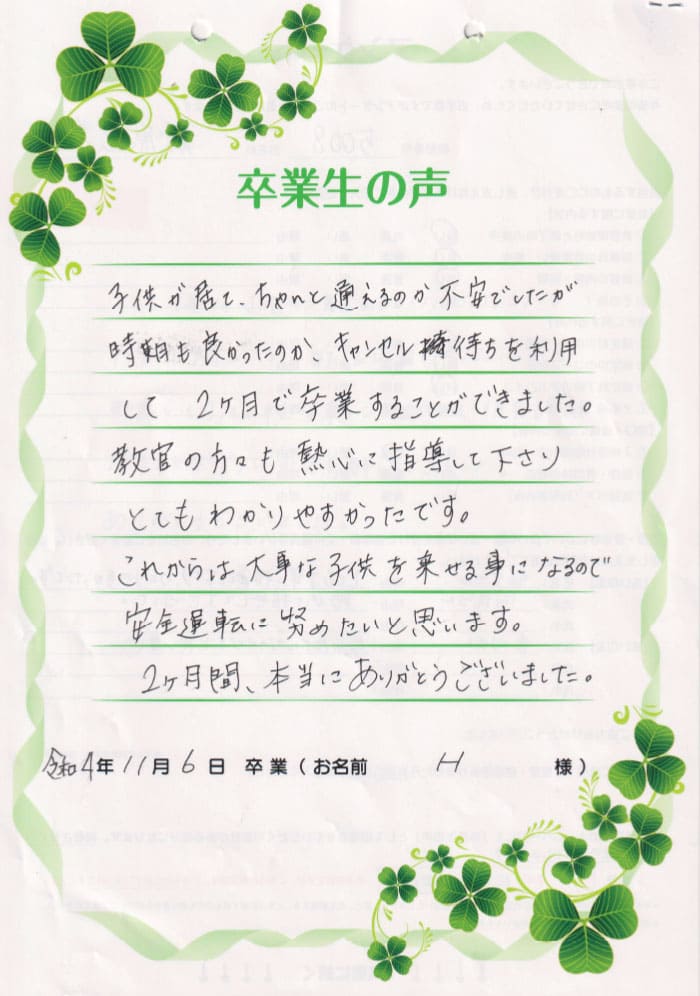 卒業生の声
子供が居て、ちゃんと通えるのか不安でしたが
時期も良かったのか キャンセル待ちを利用
して 2ヶ月で卒業することができました。
教官の方々も熱心に指導して下さり
とてもわかりやすかったです。
これからは大事な子供を乗せる事になるので
安全運転に努めたいと思います。
2ヶ月間、本当にありがとうございました。
令和4年11月6日 卒業(お名前 H 様)